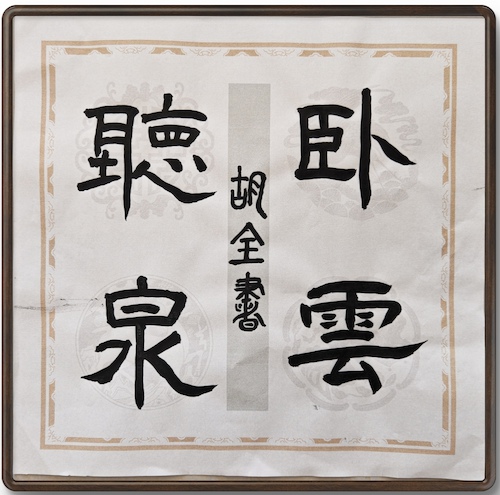 卧雲
聽泉
胡全書